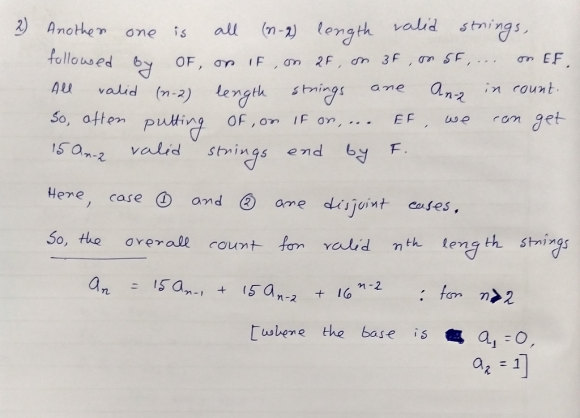 2) Another one is all (n-2) length valid strings,
followed by 0F, or 1F, or 2F, or 3F, or 5F, ... or EF.
All valid (n-2) length strings are aₙ₋₂ in count.
So, after putting 0F, or 1F or, ... EF, we can get
15 aₙ₋₂ valid strings end by F.
Here, case ① and ② are disjoint cases.
So, the overall count for valid nth length strings
aₙ = 15 aₙ₋₁ + 15 aₙ₋₂ + 16ⁿ⁻² : for n>2
[where the base is a₁ = 0,
a₂ = 1]